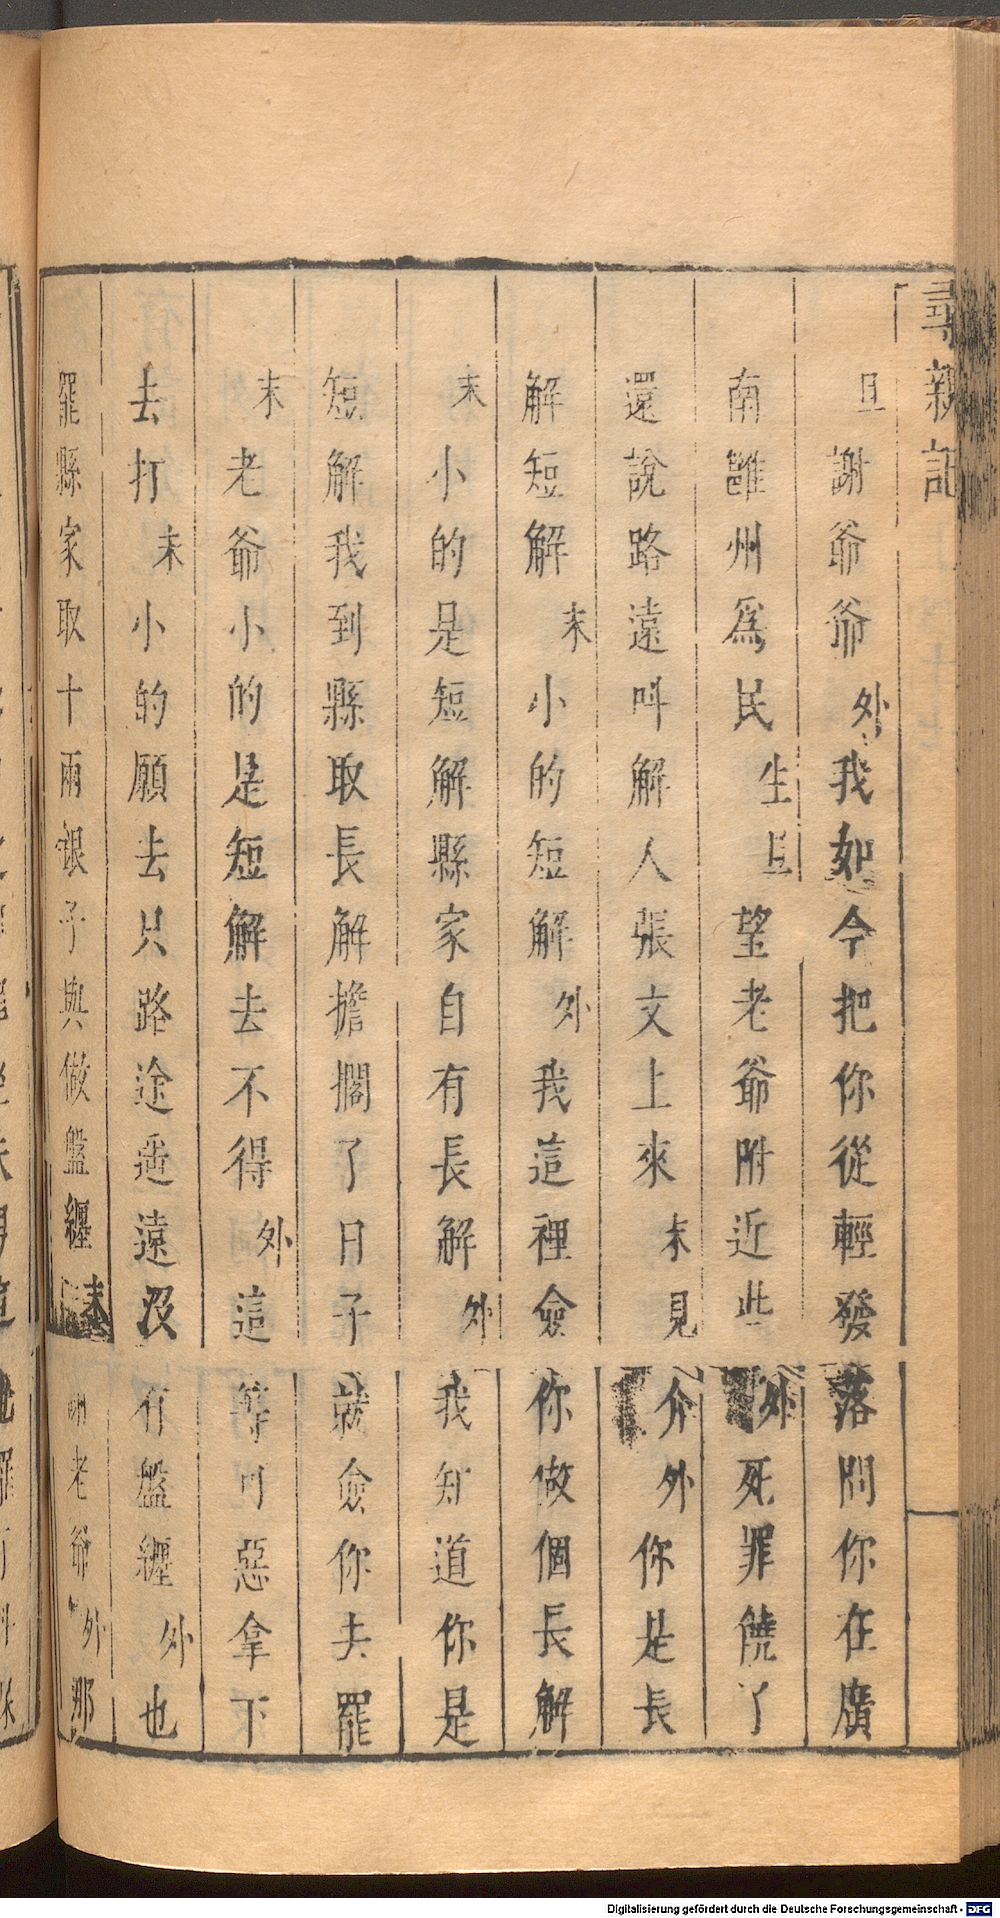 尋親記
旦謝爺爺外我如今把你從輕發落問你在廣
南雝州爲民生旦望老爺附近些外死罪饒了
還說路遠叫解人張文上來末見介外你是長
解短解末小的短解外我這裡僉你做個長解
末小的是短解縣家自有長解外我知道你是
短解我到縣取長解擔擱了日子就僉你去罷
末老爺小的是短解去不得外這等可惡拿下
去打末小的願去只路途遥遠没有盤纏外也
罷縣家取十兩銀子與做盤纏末謝老爺外那
Digitalisierung gefördert durch die Deutsche Forschungsgemeinschaft - DFG